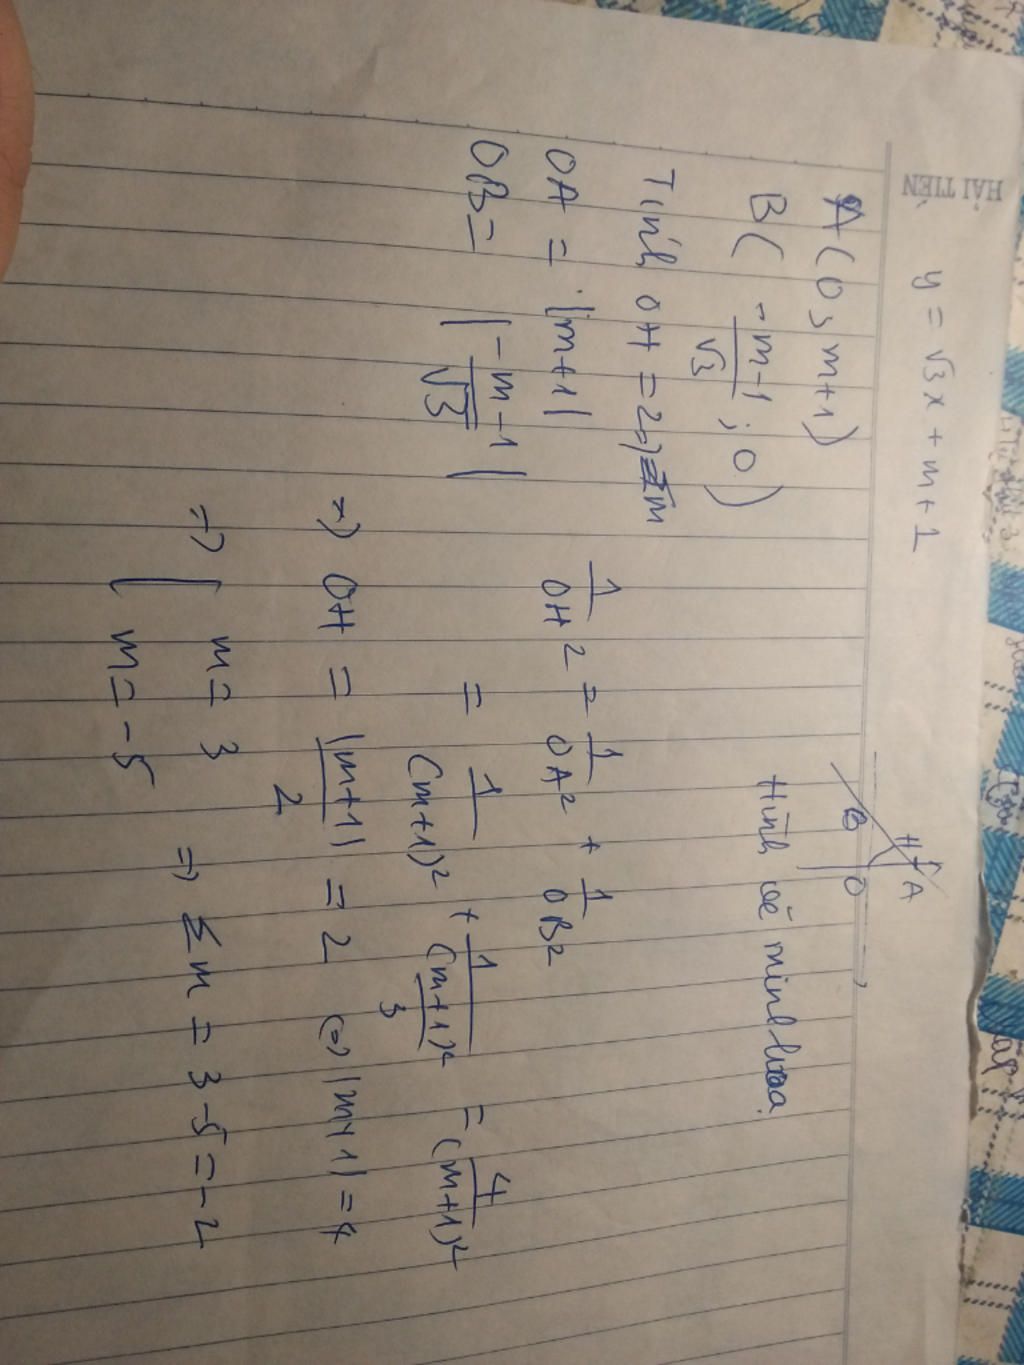 HẢI TIẾN
y = √3x + m + 1
A(0; m+1)
B(-m-1/√3; 0)
H
A
B
O
Hình vẽ minh họa.
Tính OH = 2 ⇒ m
OA = |m+1|
OB = |-m-1/√3|
1/OH² = 1/OA² + 1/OB²
= 1/(m+1)² + 1/(m+1)²/3 = 4/(m+1)²
⇒ OH = |m+1|/2 = 2 (=) |m+1| = 4
⇒ [ m = 3
m = -5
⇒ Σm = 3 - 5 = -2